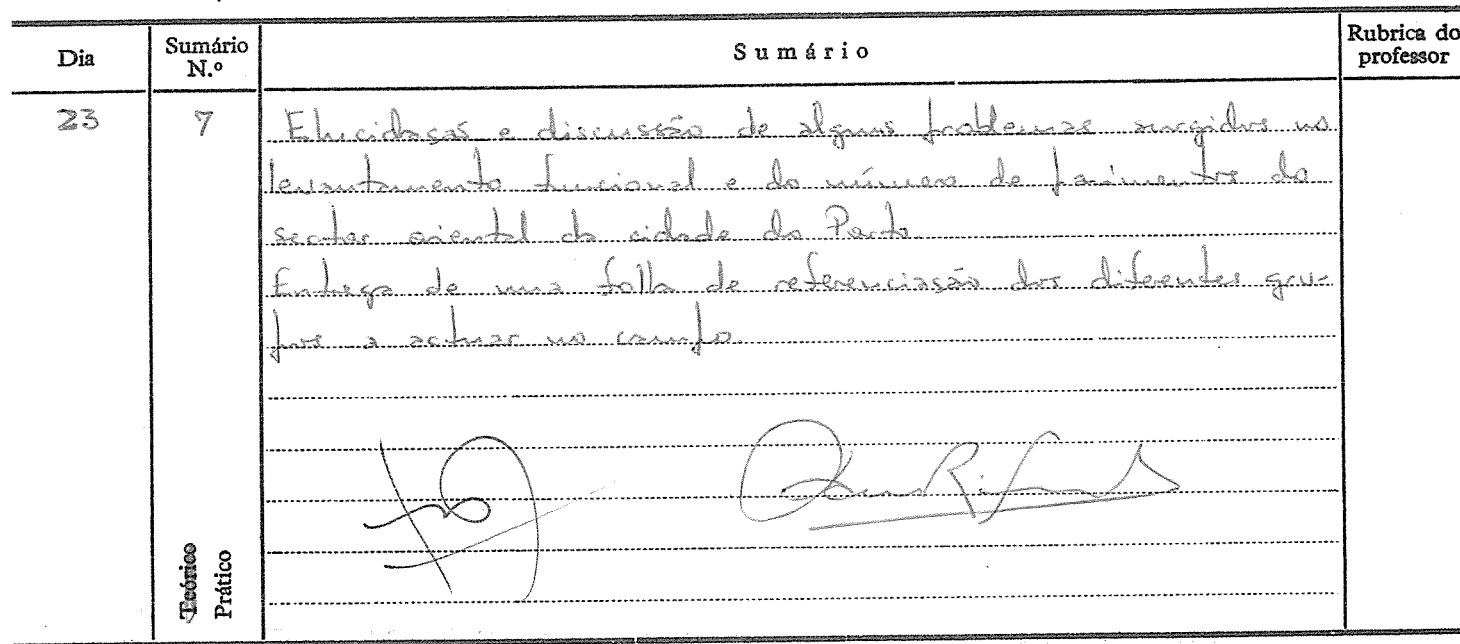 Dia
Sumário N.º
Sumário
Rubrica do professor
23
7
Elucidação e discussão de alguns problemas surgidos no
levantamento funcional e do número de pavimentos do
sector oriental da cidade do Porto.
Entrega de uma folha de referenciação dos diferentes gru-
pos a actuar no campo.
Teórico
Prático